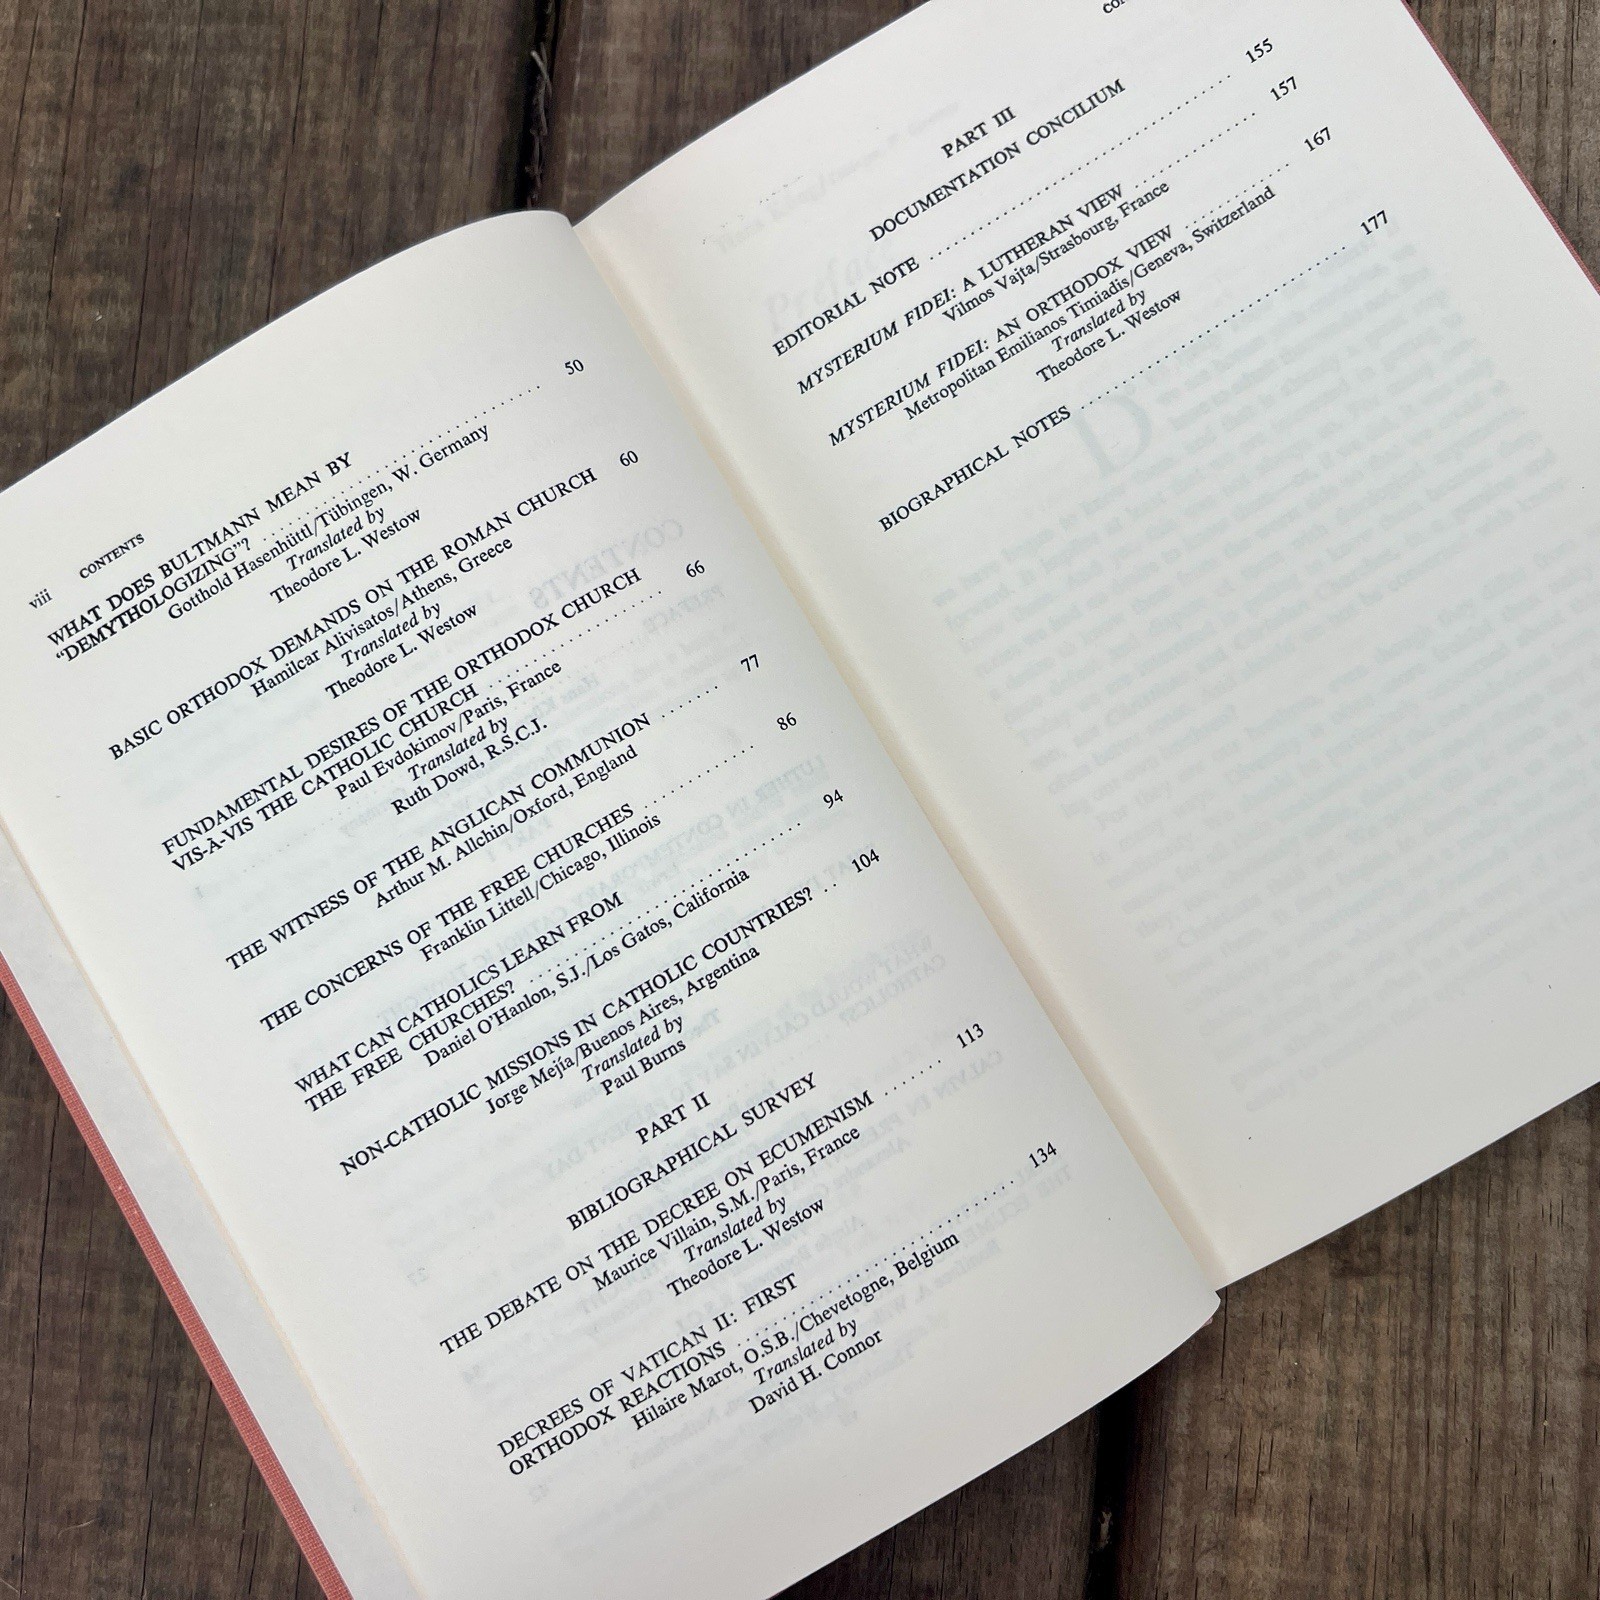 viii CONTENTS
WHAT DOES BULTMANN MEAN BY
“DEMYTHOLOGIZING”? 50
Gotthold Hasenhüttl/Tübingen, W. Germany
Translated by
Theodore L. Westow
BASIC ORTHODOX DEMANDS ON THE ROMAN CHURCH 60
Hamilcar Alivisatos/Athens, Greece
Translated by
Theodore L. Westow
FUNDAMENTAL DESIRES OF THE ORTHODOX CHURCH
VIS-À-VIS THE CATHOLIC CHURCH 66
Paul Evdokimov/Paris, France
Translated by
Ruth Dowd, R.S.C.J.
THE WITNESS OF THE ANGLICAN COMMUNION 77
Arthur M. Allchin/Oxford, England
THE CONCERNS OF THE FREE CHURCHES 86
Franklin Littell/Chicago, Illinois
WHAT CAN CATHOLICS LEARN FROM
THE FREE CHURCHES? 94
Daniel O'Hanlon, S.J./Los Gatos, California
NON-CATHOLIC MISSIONS IN CATHOLIC COUNTRIES? 104
Jorge Mejía/Buenos Aires, Argentina
Translated by
Paul Burns
PART II
BIBLIOGRAPHICAL SURVEY
THE DEBATE ON THE DECREE ON ECUMENISM 113
Maurice Villain, S.M./Paris, France
Translated by
Theodore L. Westow
DECREES OF VATICAN II: FIRST
ORTHODOX REACTIONS 134
Hilaire Marot, O.S.B./Chevetogne, Belgium
Translated by
David H. Connor
PART III
DOCUMENTATION CONCILIUM
EDITORIAL NOTE 155
MYSTERIUM FIDEI: A LUTHERAN VIEW 157
Vilmos Vajta/Strasbourg, France
MYSTERIUM FIDEI: AN ORTHODOX VIEW 167
Metropolitan Emilianos Timiadis/Geneva, Switzerland
Translated by
Theodore L. Westow
BIOGRAPHICAL NOTES 177